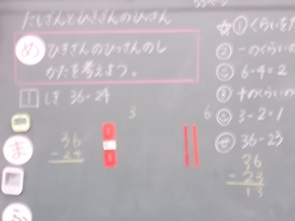 たしざんとひきざんのひっさん
め
ひきざんのひっさんのし
かたを考えよう。
1 しき 36-24
ま
36
-24
3
6
☆① くらいを
② 一のくらいの
6-4=2
十のくらいの
3-2=1
36-23
36
-23
13